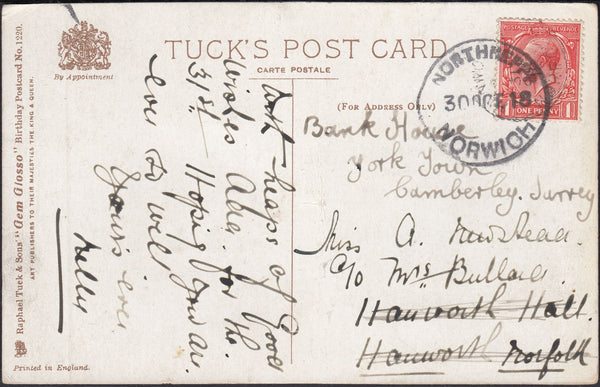 By Appointment
TUCK'S POST CARD
CARTE POSTALE
(For Address Only)
Raphael Tuck & Sons' "Gem Glosso" Birthday Postcard No. 1220.
ART PUBLISHERS TO THEIR MAJESTIES THE KING & QUEEN.
Printed in England.
POSTAGE REVENUE
1 ONE PENNY 1
NORTHREPPS
30 OC 18
NORWICH
With heaps of Good
Wishes Ada. for the
31st - Hoping you are
ever so well
Yours ever
Nelly
Bank House
York Town
Camberley. Surrey
Miss A. Newstead.
C/o Mrs Bullard
Hanworth Hall.
Hanworth Norfolk